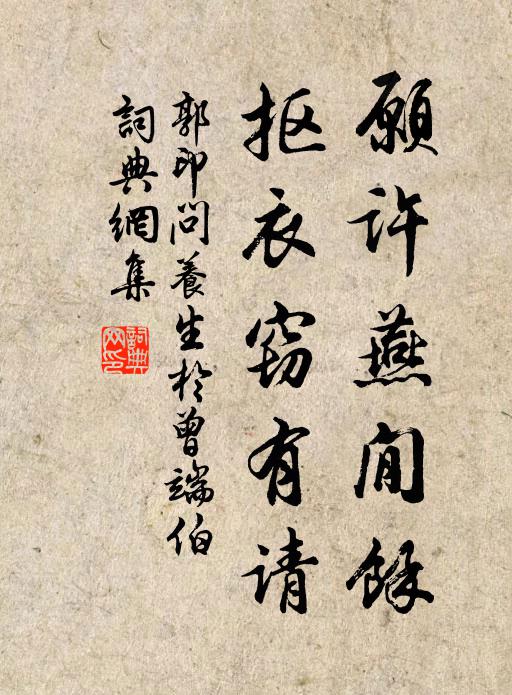 願许燕閒餘
抠衣窃有请
郭印问養生於曾端伯
詞典網集
詞典
网印